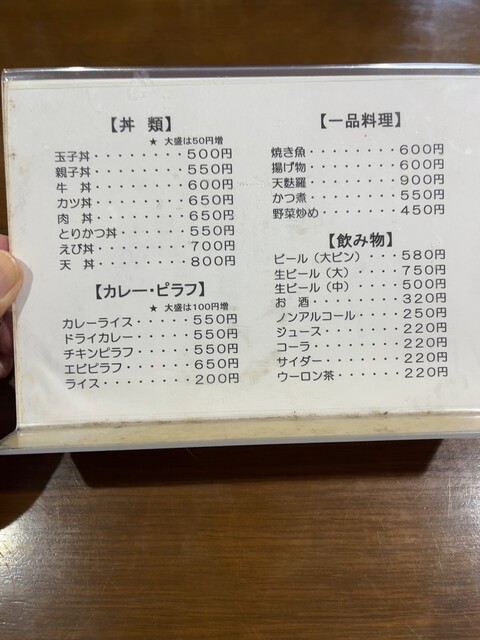 【丼　類】
★ 大盛は50円増
玉子丼・・・・・・・・５００円
親子丼・・・・・・・・５５０円
牛　丼・・・・・・・・６００円
カツ丼・・・・・・・・６５０円
肉　丼・・・・・・・・６５０円
とりかつ丼・・・・・・５５０円
えび丼・・・・・・・・７００円
天　丼・・・・・・・・８００円
【カレー・ピラフ】
★ 大盛は100円増
カレーライス・・・・・５５０円
ドライカレー・・・・・５５０円
チキンピラフ・・・・・５５０円
エビピラフ・・・・・・６５０円
ライス・・・・・・・・２００円
【一品料理】
焼き魚・・・・・・・・６００円
揚げ物・・・・・・・・６００円
天麩羅・・・・・・・・９００円
かつ煮・・・・・・・・５５０円
野菜炒め・・・・・・・４５０円
【飲み物】
ビール（大ビン）・・・５８０円
生ビール（大）・・・・７５０円
生ビール（中）・・・・５００円
お　酒・・・・・・・・３２０円
ノンアルコール・・・・２５０円
ジュース・・・・・・・２２０円
コーラ・・・・・・・・２２０円
サイダー・・・・・・・２２０円
ウーロン茶・・・・・・２２０円